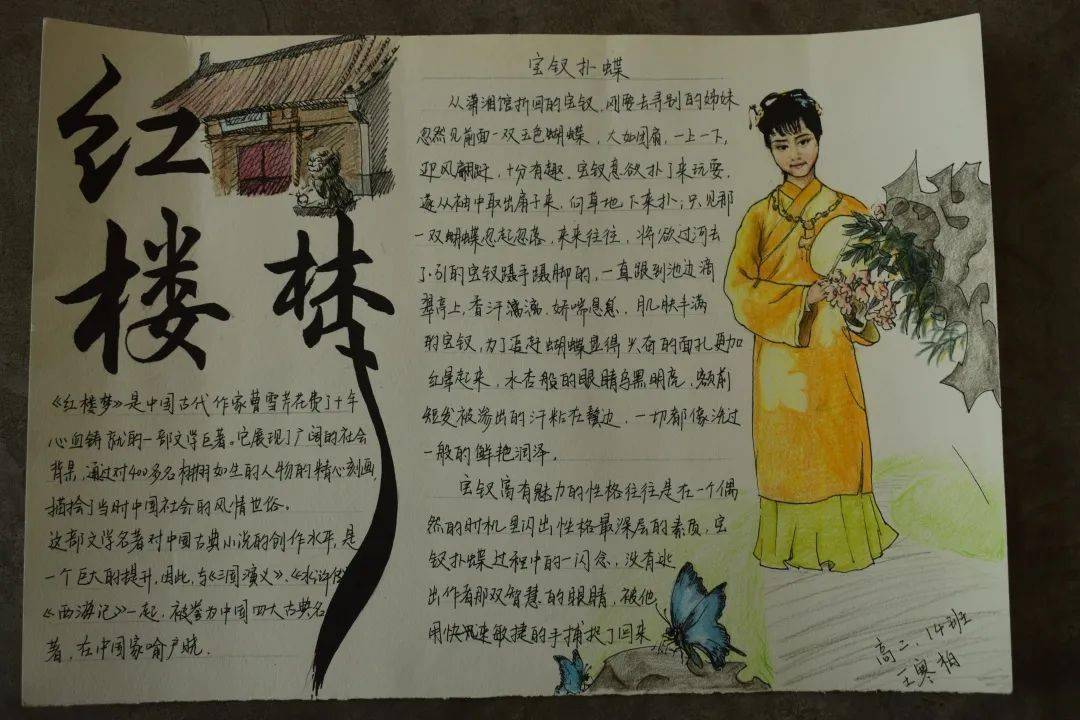 红
楼梦
《红楼梦》是中国古代作家曹雪芹花费了十年
心血铸就的一部文学巨著。它展现了广阔的社会
背景,通过对400多名栩栩如生的人物的精心刻画,
描绘了当时中国社会的风情世俗。
这部文学名著对中国古典小说的创作水平,是
一个巨大的提升,因此,与《三国演义》、《水浒传》
《西游记》一起,被誉为中国四大古典名
著,在中国家喻户晓.
宝钗扑蝶
从潇湘馆折回的宝钗,刚要去寻别的姊妹
忽然见前面一双玉色蝴蝶,大如团扇,一上一下,
迎风翩跹,十分有趣.宝钗意欲扑了来玩耍,
遂从袖中取出扇子来,向草地下来扑;只见那
一双蝴蝶忽起忽落,来来往往,将欲过河去
了.引的宝钗蹑手蹑脚的,一直跟到池边滴
翠亭上,香汗漓漓.娇喘息息,肌肤丰满
的宝钗,为了追赶蝴蝶显得兴奋的面孔更加
红晕起来,水杏般的眼睛乌黑明亮,额前
短发被渗出的汗粘在鬓边,一切都像洗过
一般的鲜艳润泽,
宝钗富有魅力的性格往往是在一个偶
然的时机里闪出性格最深层的素质,宝
钗扑蝶过程中的一闪念,没有逃
出作者那双智慧的眼睛,被他
用快速敏捷的手捕捉了回来
高二.14班
王寒柏